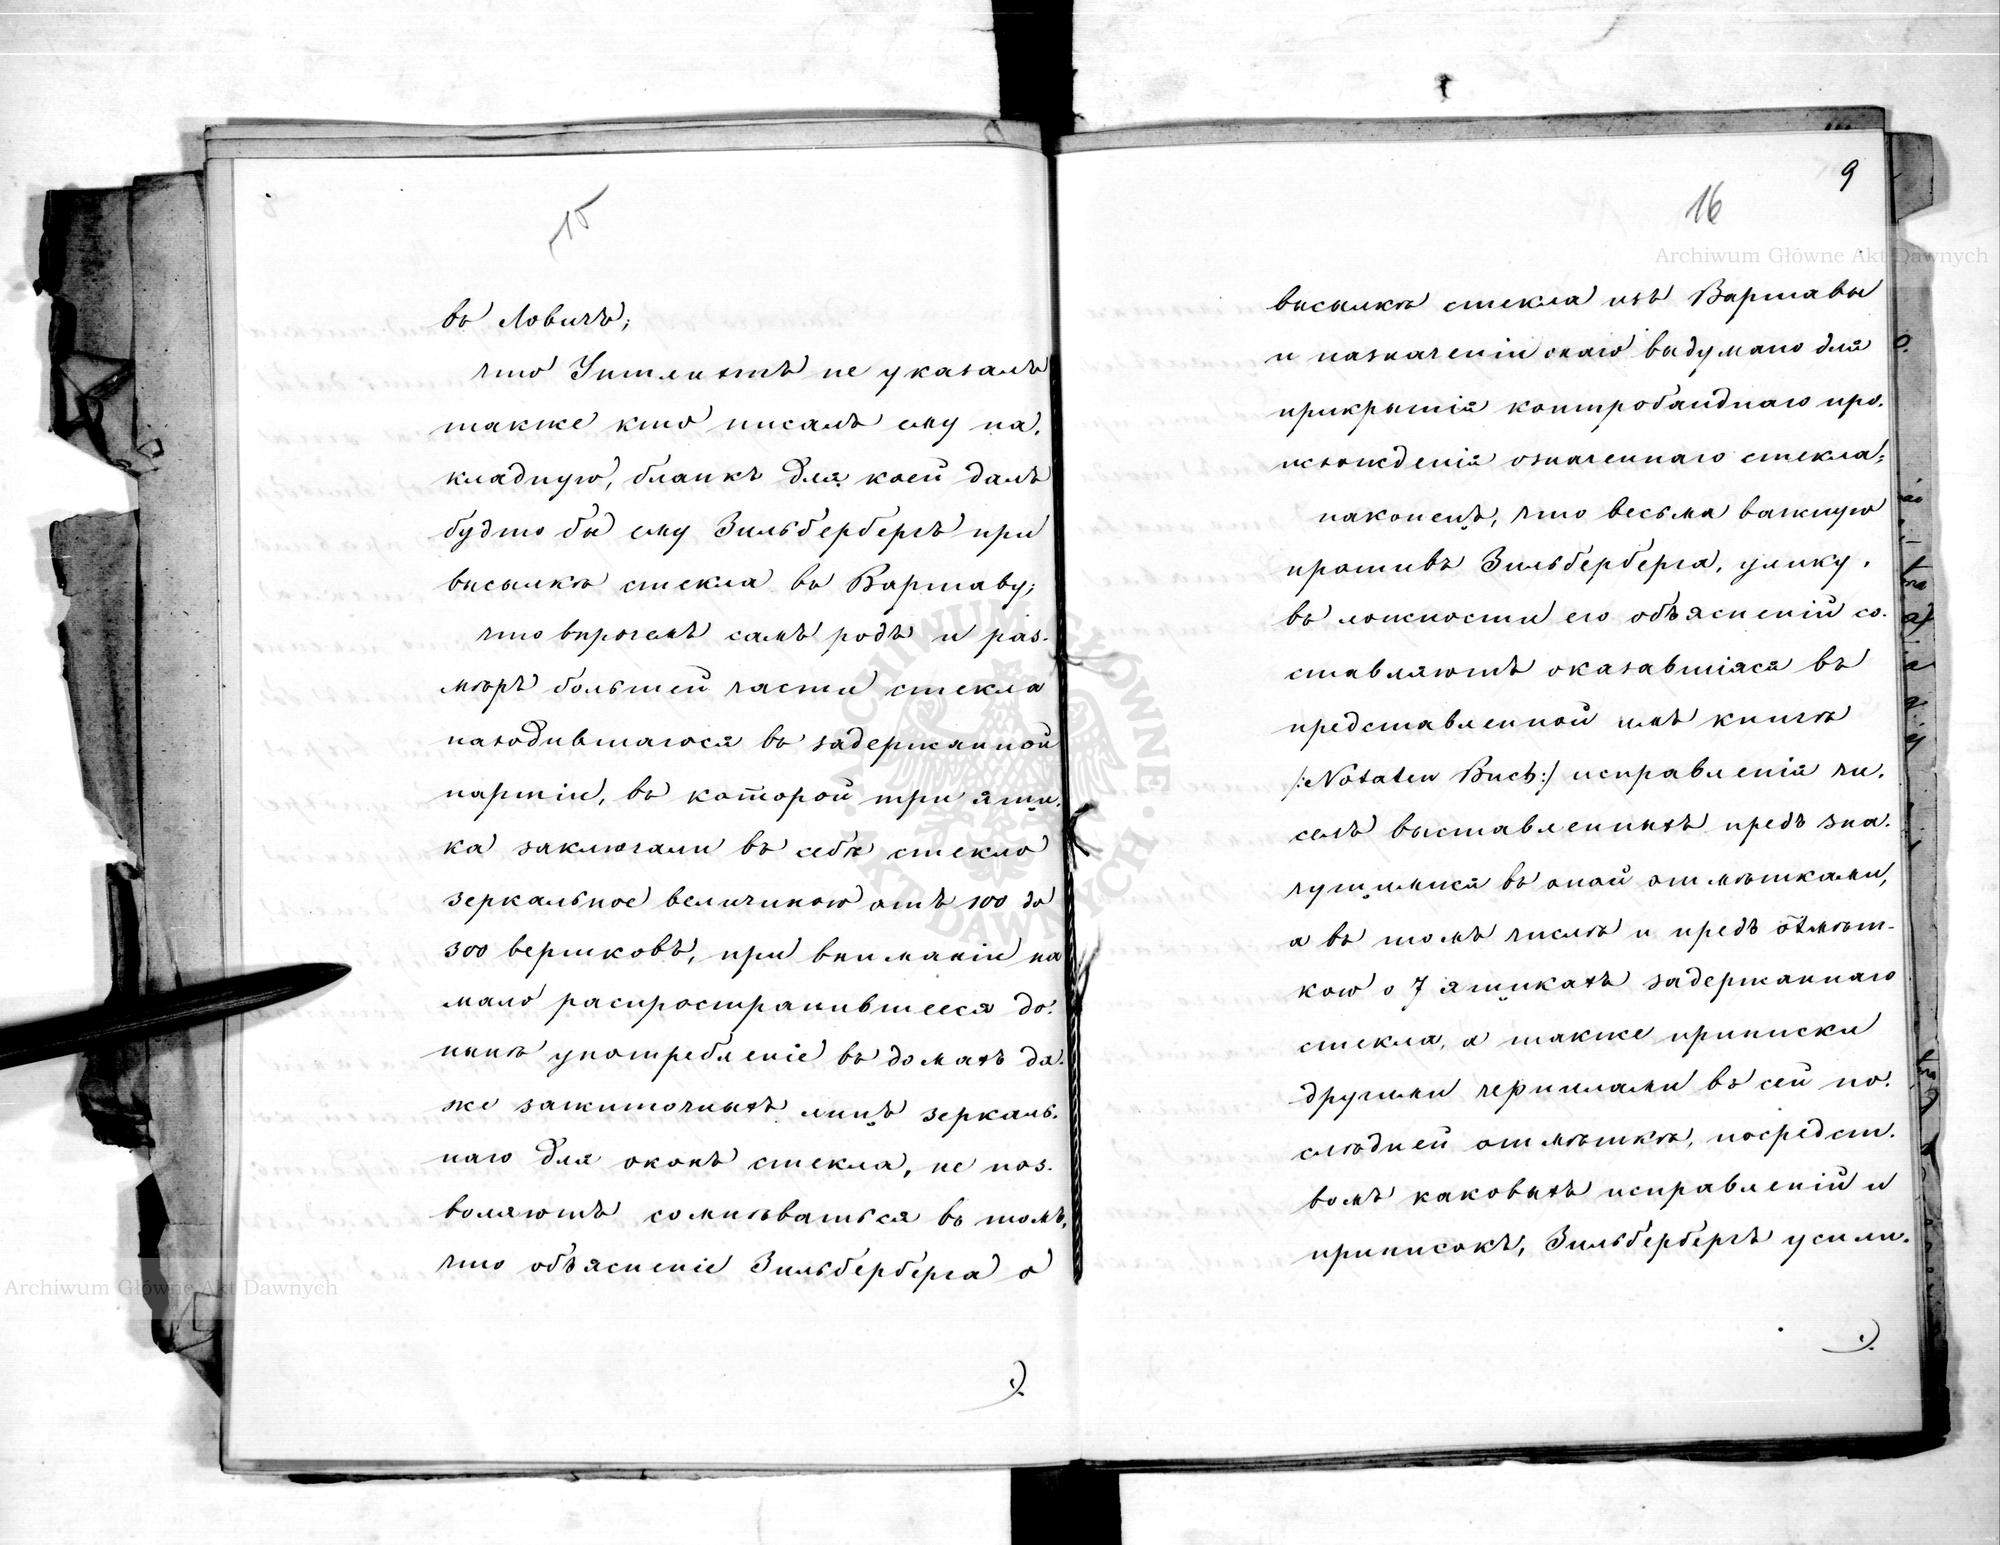 15
въ Ловичѣ;
что Унтлихтъ не указалъ
также кто писалъ ему на-
кладную, бланкъ для коей далъ
будто бы ему Зильбербергъ при
высылкѣ стекла въ Варшаву;
что впрочемъ самъ родъ и раз-
мѣръ большей части стекла
находившагося въ задержанной
партіи, въ которой три ящи-
ка заключали въ себѣ стекло
зеркальное величиною отъ 100 до
300 вершковъ, при вниманіи на
мало распространившееся до-
нынѣ употребленіе въ домахъ да-
же зажиточныхъ лицъ зеркаль-
наго для оконъ стекла, не поз-
воляютъ сомнѣваться въ томъ,
что объясненіе Зильберберга о
9
16
высылкѣ стекла изъ Варшавы
и назначеніи онаго выдумано для
прикрытія контробанднаго про-
исхожденія означеннаго стекла;
наконецъ, что весьма важную
противъ Зильберберга, улику
въ ложности его объясненій со-
ставляютъ оказавшіяся въ
представленной имъ книгѣ
/:Notaten Buch:/ исправленія чи-
селъ выставленныхъ предъ зна-
чущимися въ оной отмѣтками,
а въ томъ числѣ и предъ отмѣт-
кою о 7 ящикахъ задержаннаго
стекла, а также приписки
другими чернилами въ сей по-
слѣдней отмѣткѣ, посредст-
вомъ каковыхъ исправленій и
приписокъ, Зильбербергъ усили-
Archiwum Główne Akt Dawnych
Archiwum Główne Akt Dawnych
ARCHIWUM GŁÓWNE AKT DAWNYCH